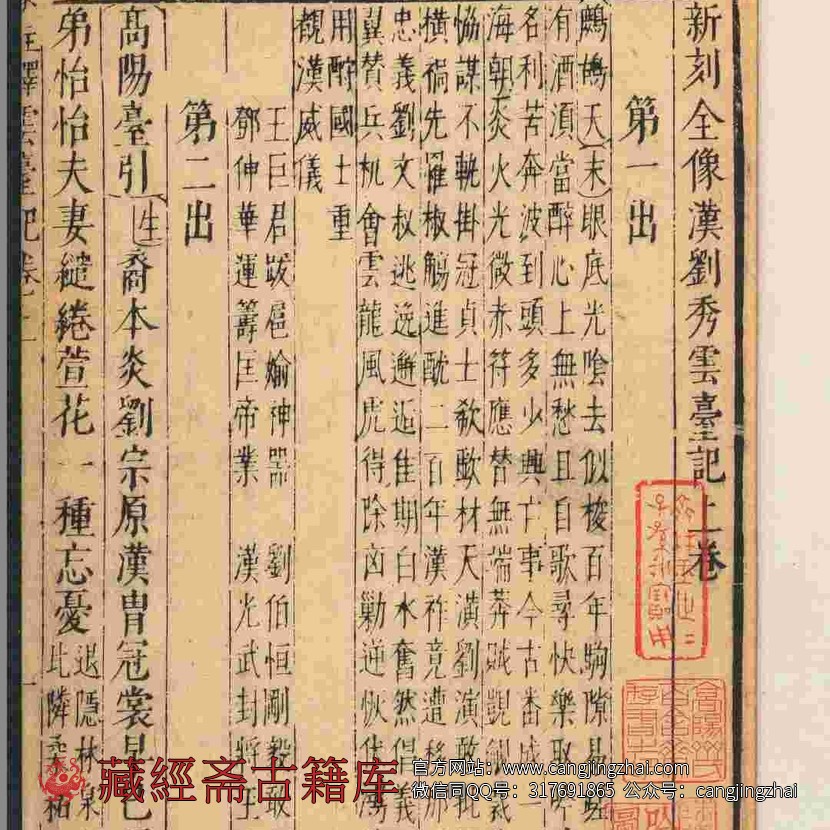 新刻全像漢劉秀雲臺記上卷
第一出
鷓鴣天（末）眼底光陰去似梭百年駒隙
有酒須當醉心上無愁且自歌尋快樂
名利苦奔波到頭多少興亡事今古番成
海朝炎火光微赤符應替無端莽賊覬
恊謀不軌掛冠貞士欷歔材天潢劉演敢
橫禍先罹椒觴進酖二百年漢祚竟遭移
忠義劉文叔逃逸邂逅佳期白水奮然倡義
翼賛兵机會雲龍風虎得除凶勦逆恢
用酧國士重
覩漢威儀
王巨君跋扈婾神器 劉伯恒剛毅
鄧伸華運籌匡帝業 漢光武封將
第二出
高陽臺引（生）裔本炎劉宗原漢胄冠裳
弟怡怡夫妻繾綣萱花一種忘憂退隱林泉
此隣
釋雲臺記卷
一
藏經斋古籍库
官方网站：www.cangjingzhai.com
微信同QQ号：317691865 公众号：cangjingzhai